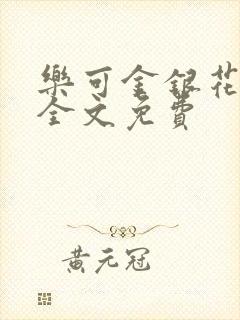 樂可金銀花
全文免費
黃元冠